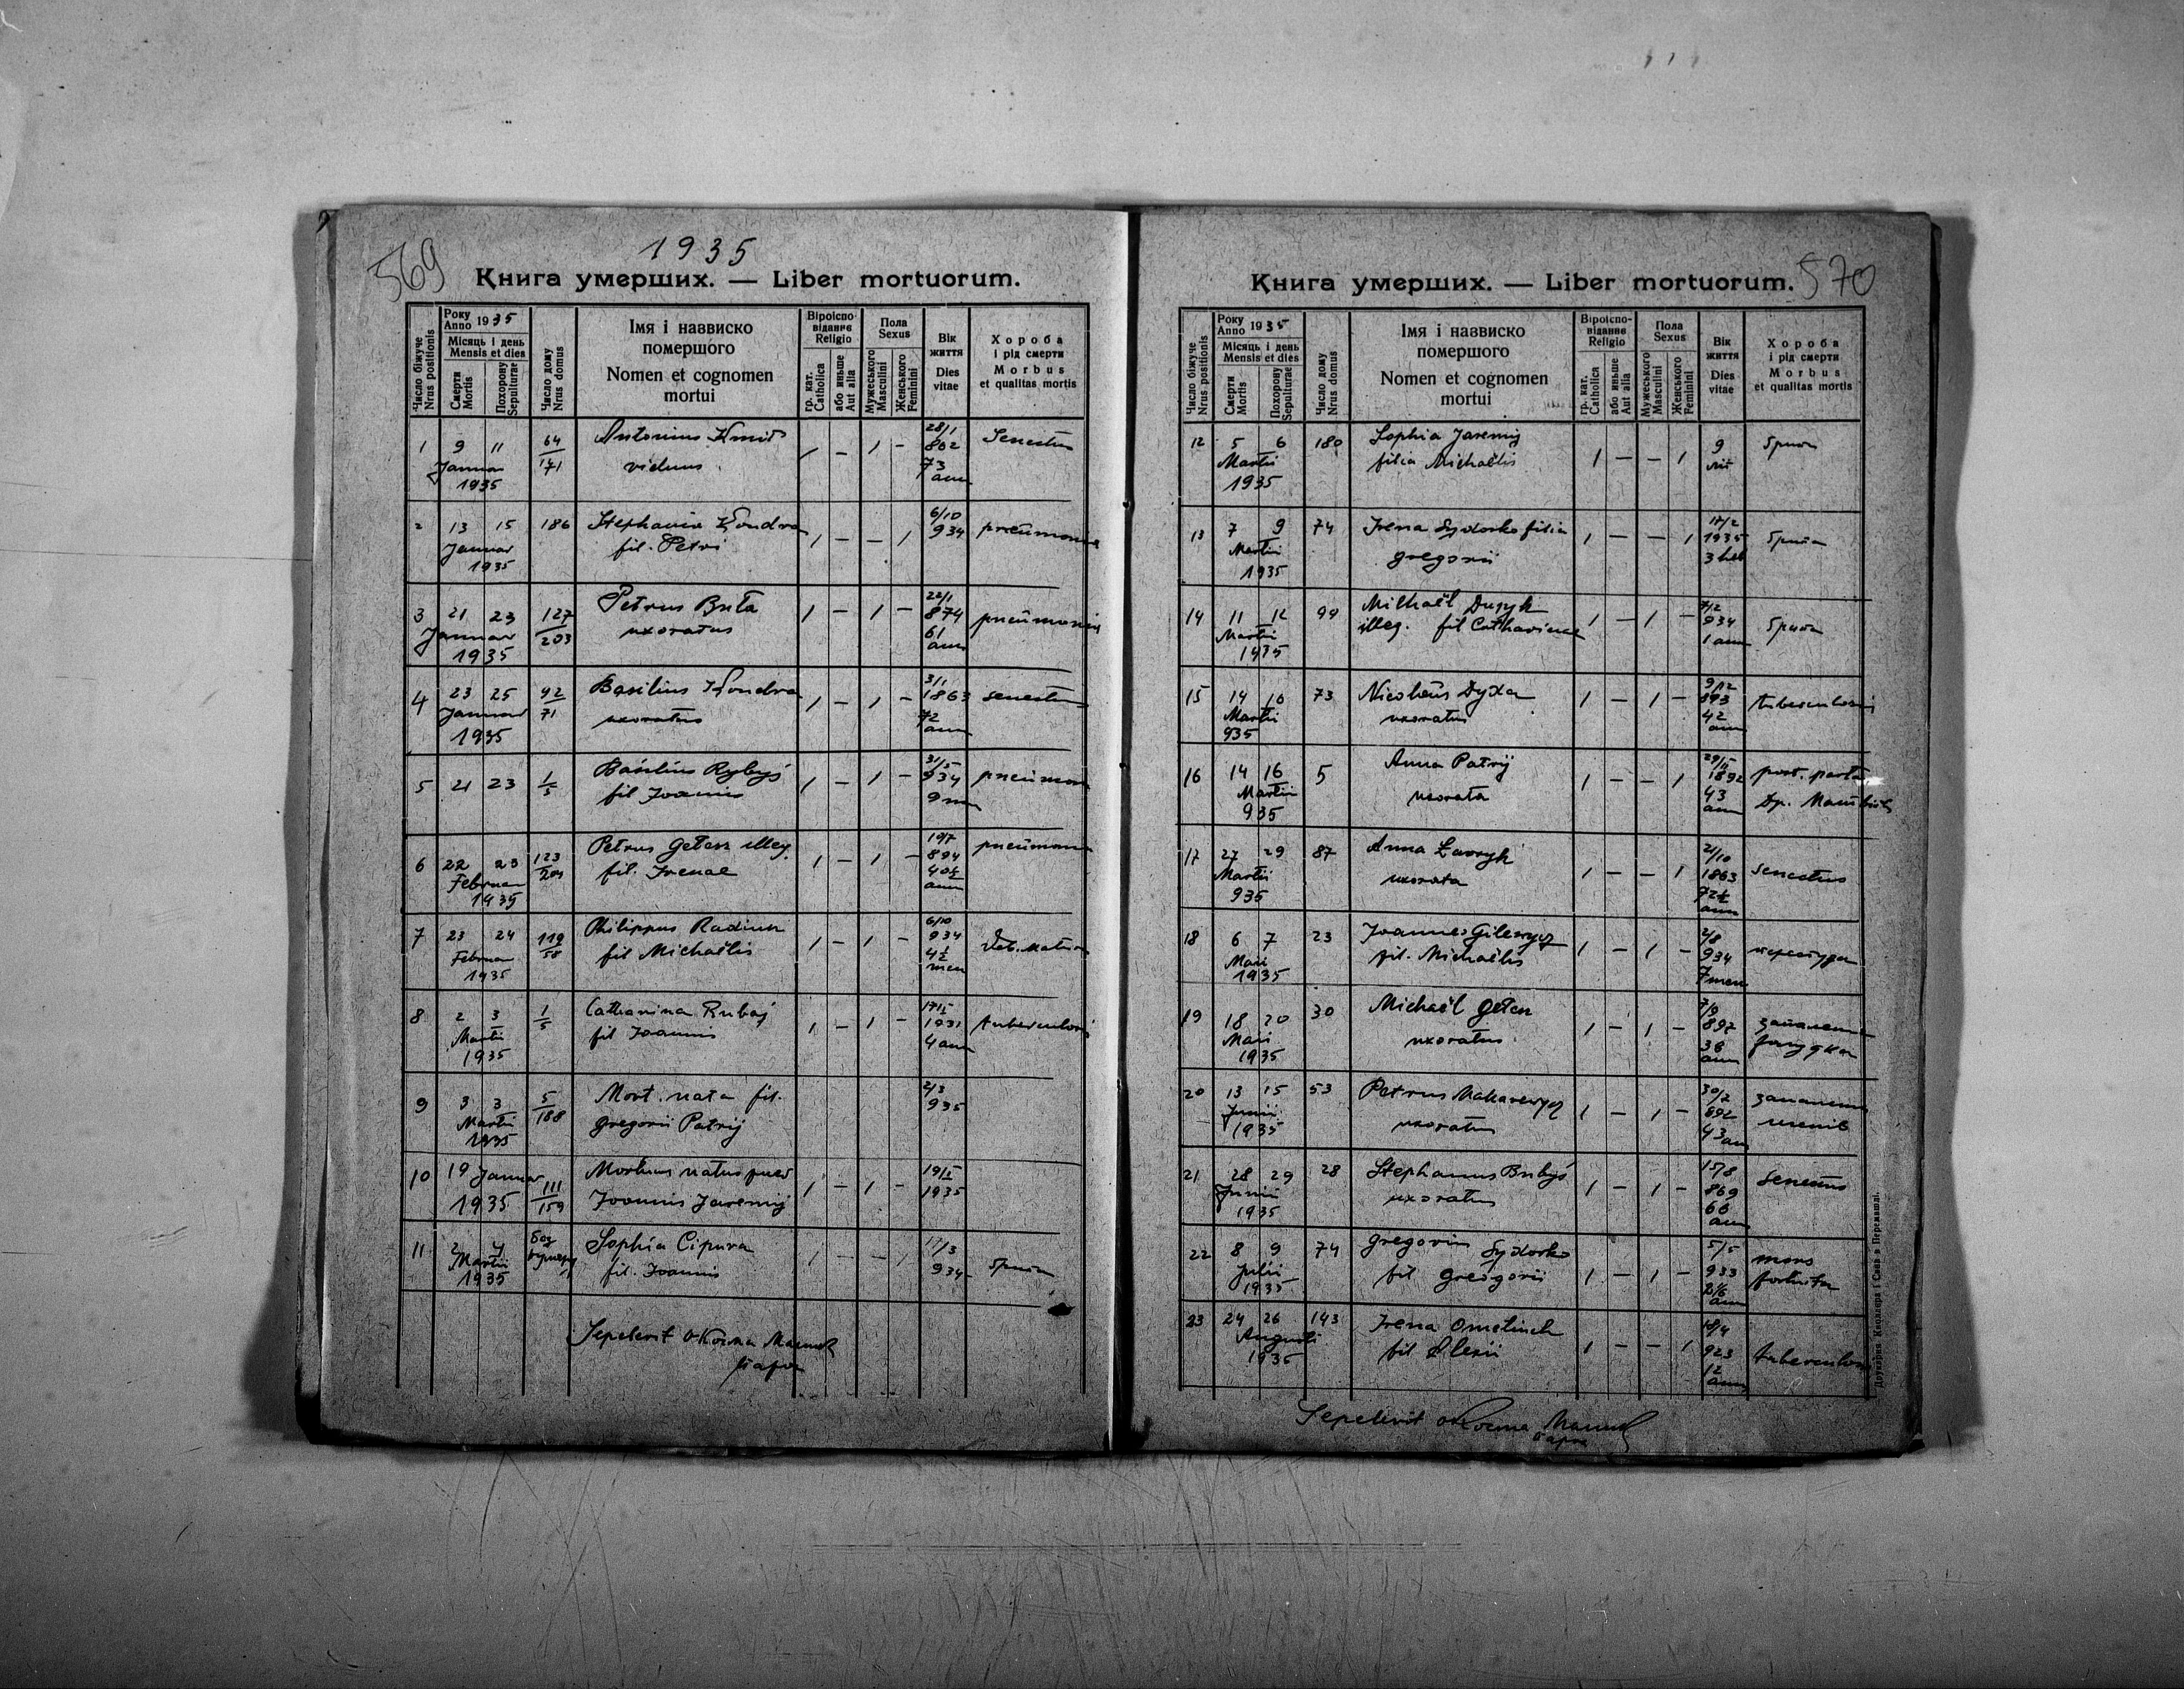 569
1935
Книга умерших. — Liber mortuorum.
Число біжуче
Nrus positionis
Року
Anno 1935
Місяць і день
Mensis et dies
Смерти
Mortis
Похорону
Sepulturae
Число дому
Nrus domus
Імя і назвиско
помершого
Nomen et cognomen
mortui
Віроіспо-
відання
Religio
гр. кат.
Catholica
або иньше
Aut alia
Пола
Sexus
Мужеського
Masculini
Женського
Feminini
Вік
життя
Dies
vitae
Хороба
і рід смерти
Morbus
et qualitas mortis
1 9 11 64/171 Antonius Kmit 1 — 1 — 28/1 862 Senectus
Januar viduus 73
1935 ann
2 13 15 186 Stephania Kondra 1 — — 1 6/10 934 pneumonia
Januar fil. Petri
1935
3 21 23 127/203 Petrus Buła 1 — 1 — 22/1 874 pneumonia
Januar uxoratus 61
1935 ann
4 23 25 92/71 Basilius Kondra 1 — 1 — 3/1 1863 senectus
Januar uxoratus 72
1935 ann
5 21 23 1/5 Basilius Rybyś 1 — 1 — 31/5 934 pneumon
fil Joannis 9 m
6 22 23 123/201 Petrus Geten illeg. 1 — 1 — 19/7 894 pneumon
Februar fil. Irenae 40½
1935 ann
7 23 24 119/58 Philippus Radiuk 1 — 1 — 6/10 934
Februar fil Michaëlis 4½
1935 men
8 2 3 1/5 Catharina Rubaj 1 — 1 — 17/1 1931 tuberculosis
Martii fil Joannis 4 ann
1935
9 3 3 5/188 Mort. nata fil. 2/3 935
Martii gregorii Patrij
1935
10 19 Januar 111/159 Mortuus natus puer 1 — 1 — 19/1 1935
1935 Joannis Jaremij
11 2 4 Sophia Cipura 1 — — 1 17/3 934
Martii fil. Joannis
1935
Sepelivit
570
Книга умерших. — Liber mortuorum.
Число біжуче
Nrus positionis
Року
Anno 1935
Місяць і день
Mensis et dies
Смерти
Mortis
Похорону
Sepulturae
Число дому
Nrus domus
Імя і назвиско
помершого
Nomen et cognomen
mortui
Віроіспо-
відання
Religio
гр. кат.
Catholica
або иньше
Aut alia
Пола
Sexus
Мужеського
Masculini
Женського
Feminini
Вік
життя
Dies
vitae
Хороба
і рід смерти
Morbus
et qualitas mortis
12 5 6 180 Sophia Jaremij 1 — — 1 9
Martii filia Michaëlis
1935
13 7 9 74 Irena Sydorko filia 1 — — 1 17/2 1935
Martii gregorii 3 heb
1935
14 11 12 99 Michaël Dusyk 1 — 1 — 7/2 934
Martii illeg. fil Catharinae 1 ann
1935
15 14 16 73 Nicolaus Dyxa 1 — 1 — 9/12 893 tuberculosis
Martii uxoratus 42
935 ann
16 14 16 5 Anna Patrij 1 — — 1 29/11 1892 post. parta
Martii uxorata 43
935 ann
17 27 29 87 Anna Ławryk 1 — — 1 21/10 1863 senectus
Martii uxorata 72½
935 ann
18 6 7 23 Joannes Gilewycz 1 — 1 — 2/8 934
Maii fil. Michaëlis 7 men
1935
19 18 20 30 Michaël Geten 1 — 1 — 7/9 892
Maii uxoratus 36
1935 ann
20 13 15 53 Petrus Makarewycz 1 — 1 — 30/2 892
Junii uxoratus 43 ann
1935
21 28 29 28 Stephanus Bubyś 1 — 1 — 15/8 869 Senectus
Junii uxoratus 66
1935 ann
22 8 9 74 gregorius Sydorko 1 — 1 — 5/5 933 mors
Julii fil gregorii 2 1/6 fortuita
1935 ann
23 24 26 143 Irena Omelinch 1 — — 1 18/4 923 tuberculosis
Augusti fil Alexii 12
1935 ann
Sepelivit